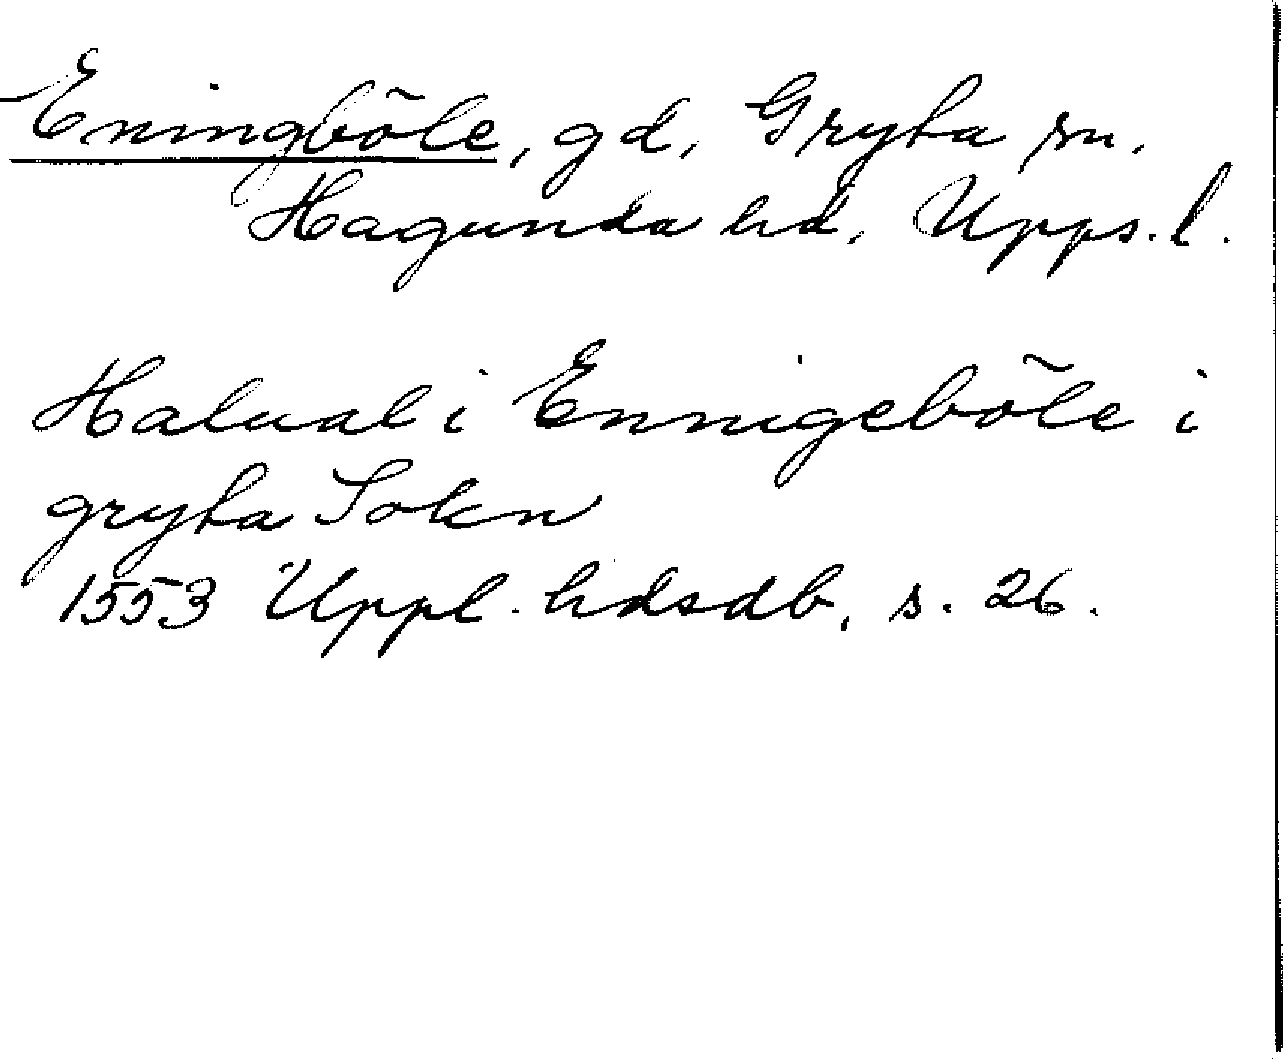 Eningböle, gd, Gryta sn.
Hagunda hd, Upps. l.
Halual i Ennigeböle i
gryta Sokn
1553 Uppl. hdsdb, s. 26.